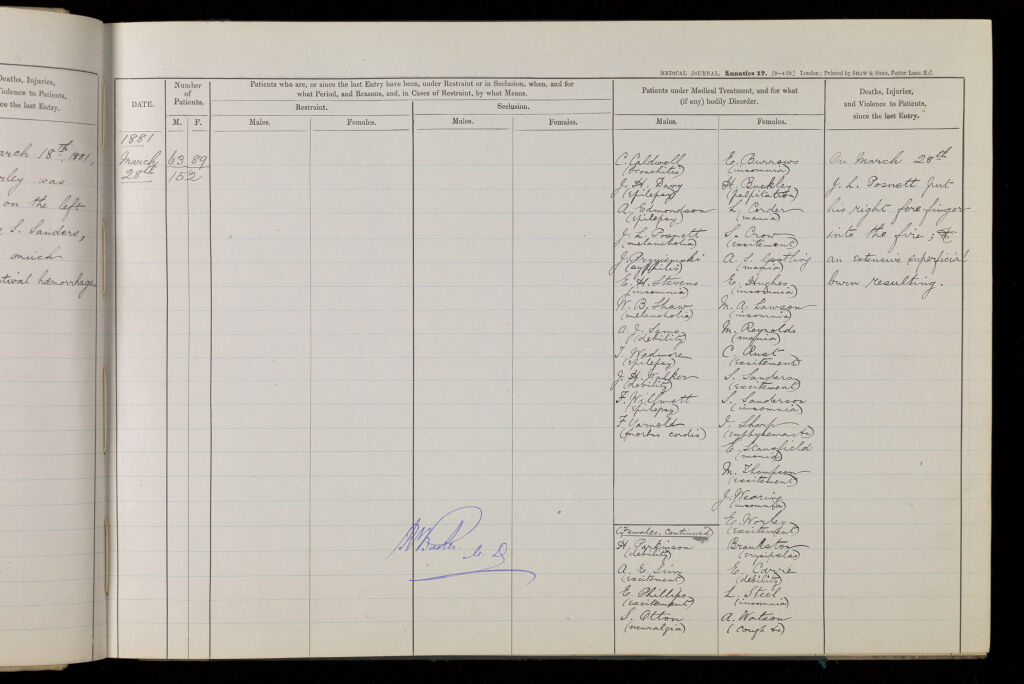 Deaths, Injuries,
Violence to Patients,
ce the last Entry.
arch 18th, 1881,
rley was
on the left
S. Sanders,
much
ctival hæmorrhage
MEDICAL JOURNAL. Lunatics 17. [9—4-79.] London: Printed by SHAW & SONS, Fetter Lane, E.C.
DATE.
Number
of
Patients.
M. F.
Patients who are, or since the last Entry have been, under Restraint or in Seclusion, when, and for
what Period, and Reasons, and, in Cases of Restraint, by what Means.
Restraint.
Seclusion.
Males.
Females.
Males.
Females.
Patients under Medical Treatment, and for what
(if any) bodily Disorder.
Males.
Females.
Deaths, Injuries,
and Violence to Patients,
since the last Entry.
1881
March
28th
63 89
152
C. Caldwell
(bronchitis)
J. H. Davy
(epilepsy)
A. Edmondson
(epilepsy)
J. L. Posnett
(melancholia)
J. Przyiemski
(syphilis)
E. H. Stevens
(insomnia)
W. B. Shaw
(melancholia)
A. J. Sams
(debility)
T. Wedmore
(epilepsy)
J. H. Walker
(debility)
F. Willmott
(epilepsy)
F. Yarnold
(morbus cordis)
(Females, continued)
H. Parkinson
(debility)
A. E. Sim
(excitement)
E. Phillips
(excitement)
S. Otton
(neuralgia)
E. Burrows
(insomnia)
H. Buckley
(palpitation)
L. Corder
(mania)
S. Crow
(excitement)
A. S. Gostling
(mania)
E. Hughes
(insomnia)
M. A. Lawson
(insomnia)
M. Reynolds
(mania)
C. Rust
(excitement)
S. Sanders
(excitement)
S. Sanderson
(insomnia)
I. Sharp
(emphysema &c)
E. Stansfield
(mania)
M. Thompson
(excitement)
J. Wearing
(insomnia)
E. Worley
(excitement)
Brankston
(erysipelas)
E. Carrie
(debility)
L. Steel
(insomnia)
A. Watson
(cough &c)
On March 28th
J. L. Posnett put
his right fore-finger
into the fire;
an extensive superficial
burn resulting.